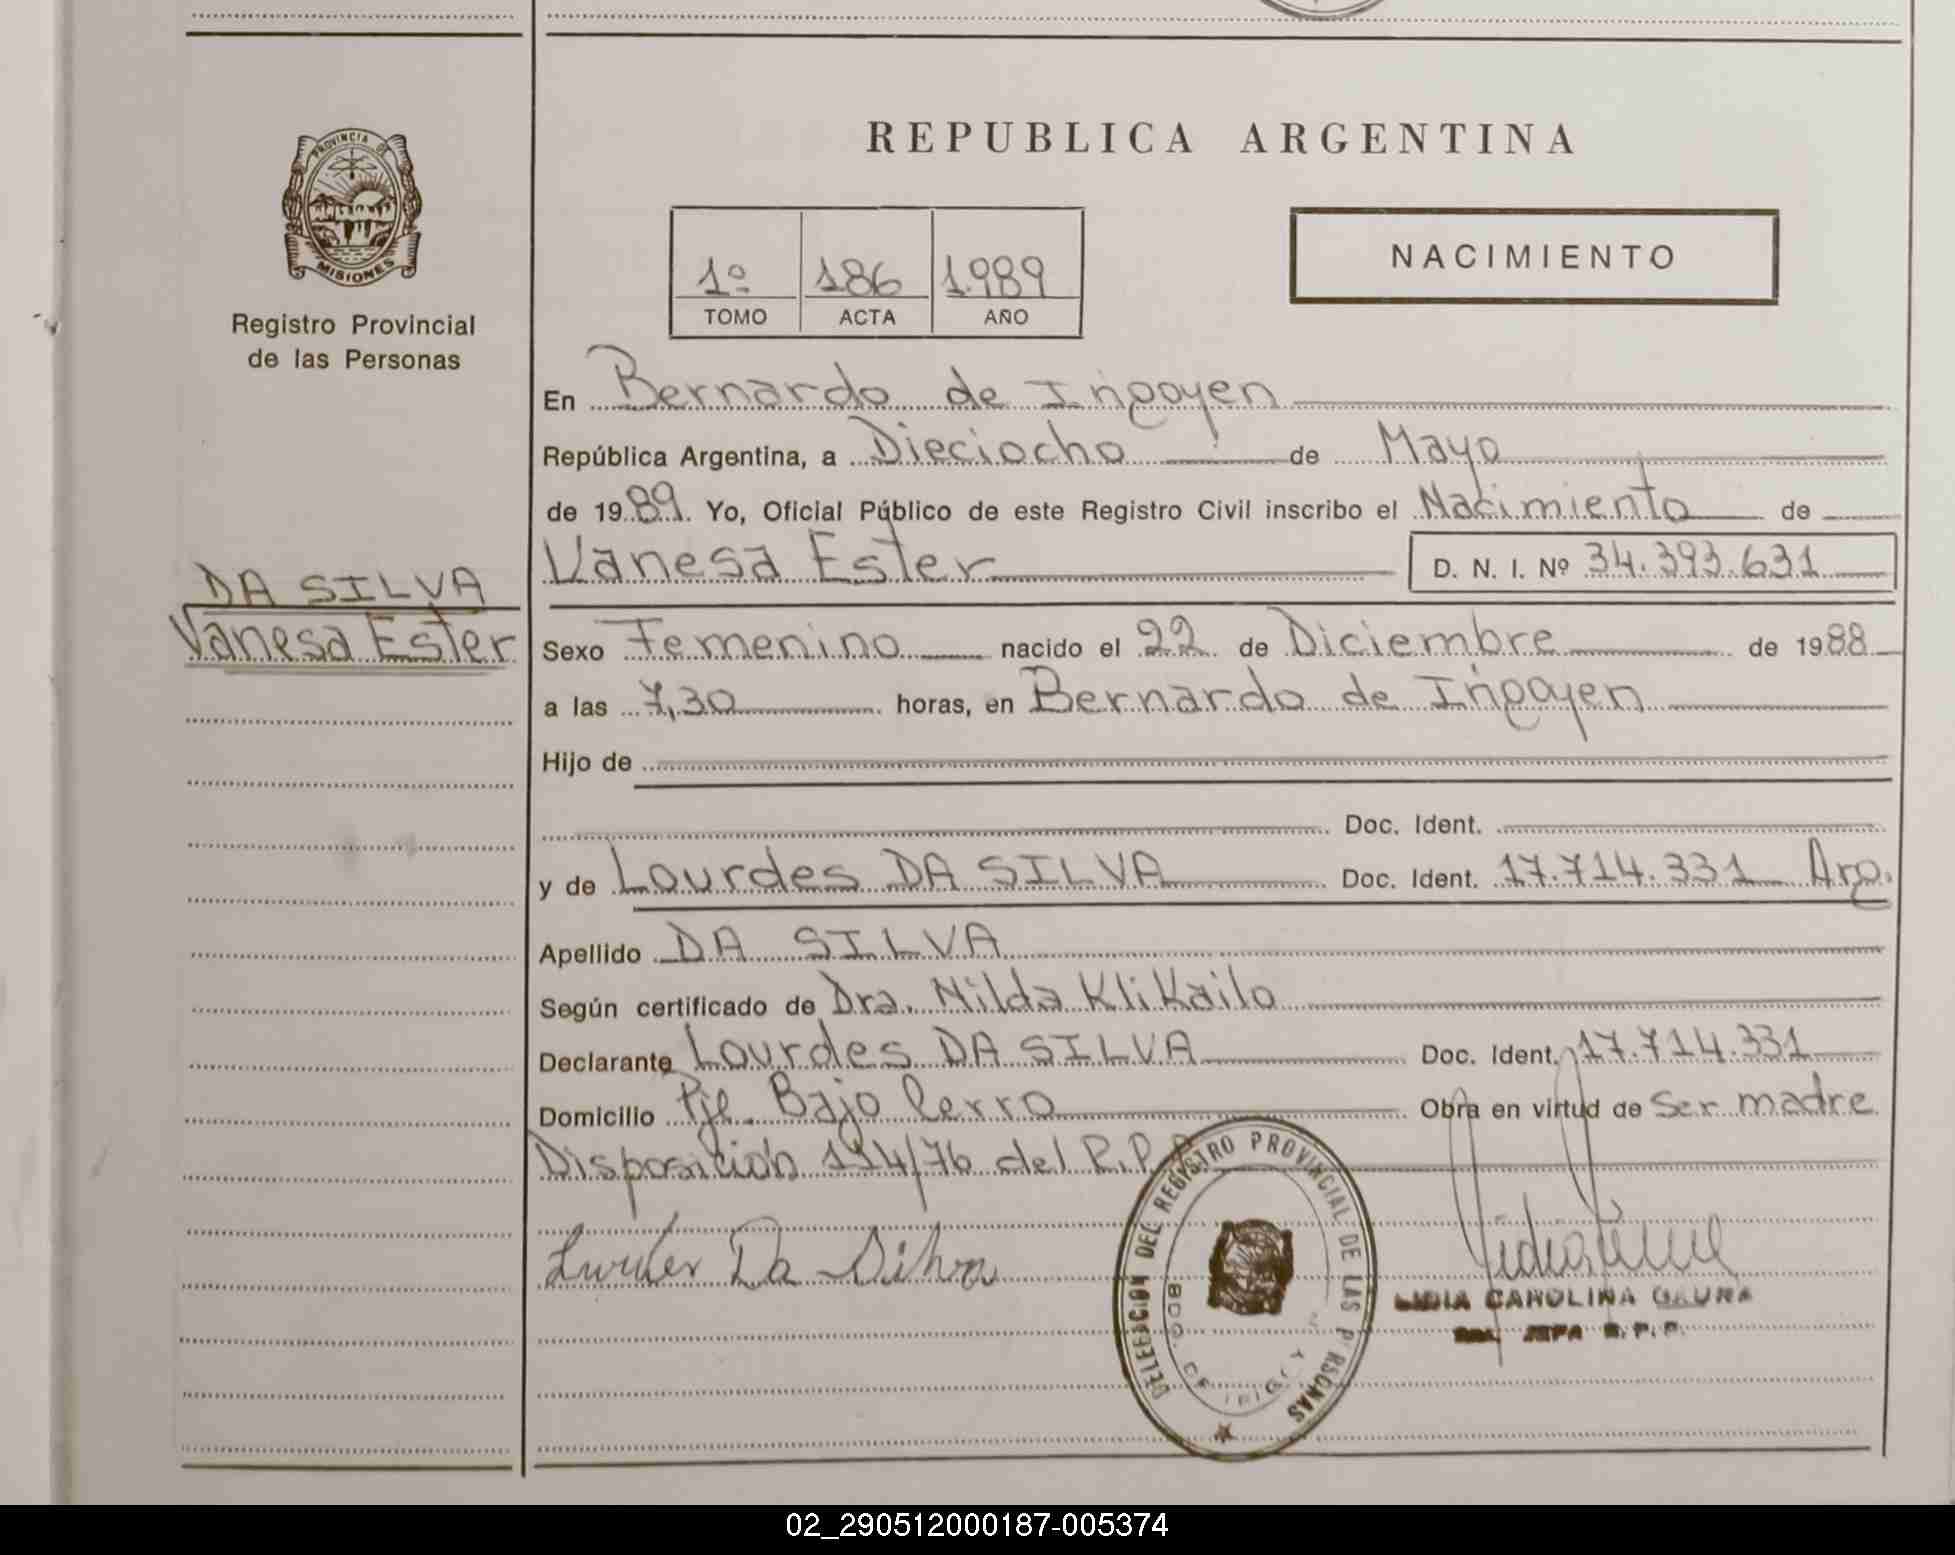 PROVINCIA DE
MISIONES
Registro Provincial
de las Personas
DA SILVA
Vanesa Ester
REPUBLICA ARGENTINA
1º 186 1.989
TOMO ACTA AÑO
NACIMIENTO
En Bernardo de Irigoyen
República Argentina, a Dieciocho de Mayo
de 1989. Yo, Oficial Público de este Registro Civil inscribo el Nacimiento de
Vanesa Ester D. N. I. Nº 34.393.631
Sexo Femenino nacido el 22 de Diciembre de 1988
a las 7,30 horas, en Bernardo de Irigoyen
Hijo de
Doc. Ident.
y de Lourdes DA SILVA Doc. Ident. 17.714.331 Arg.
Apellido DA SILVA
Según certificado de Dra. Nilda Klikailo
Declarante Lourdes DA SILVA Doc. Ident. 17.714.331
Domicilio Pje. Bajo Cerro Obra en virtud de Ser madre
Disposición 114/76 del R.P.P.
DELEGACION DEL REGISTRO PROVINCIAL DE LAS PERSONAS
BDO. DE IRIGOYEN
Da Silva
LIDIA CAROLINA GAUNA
JEFA R.P.P.
02_290512000187-005374